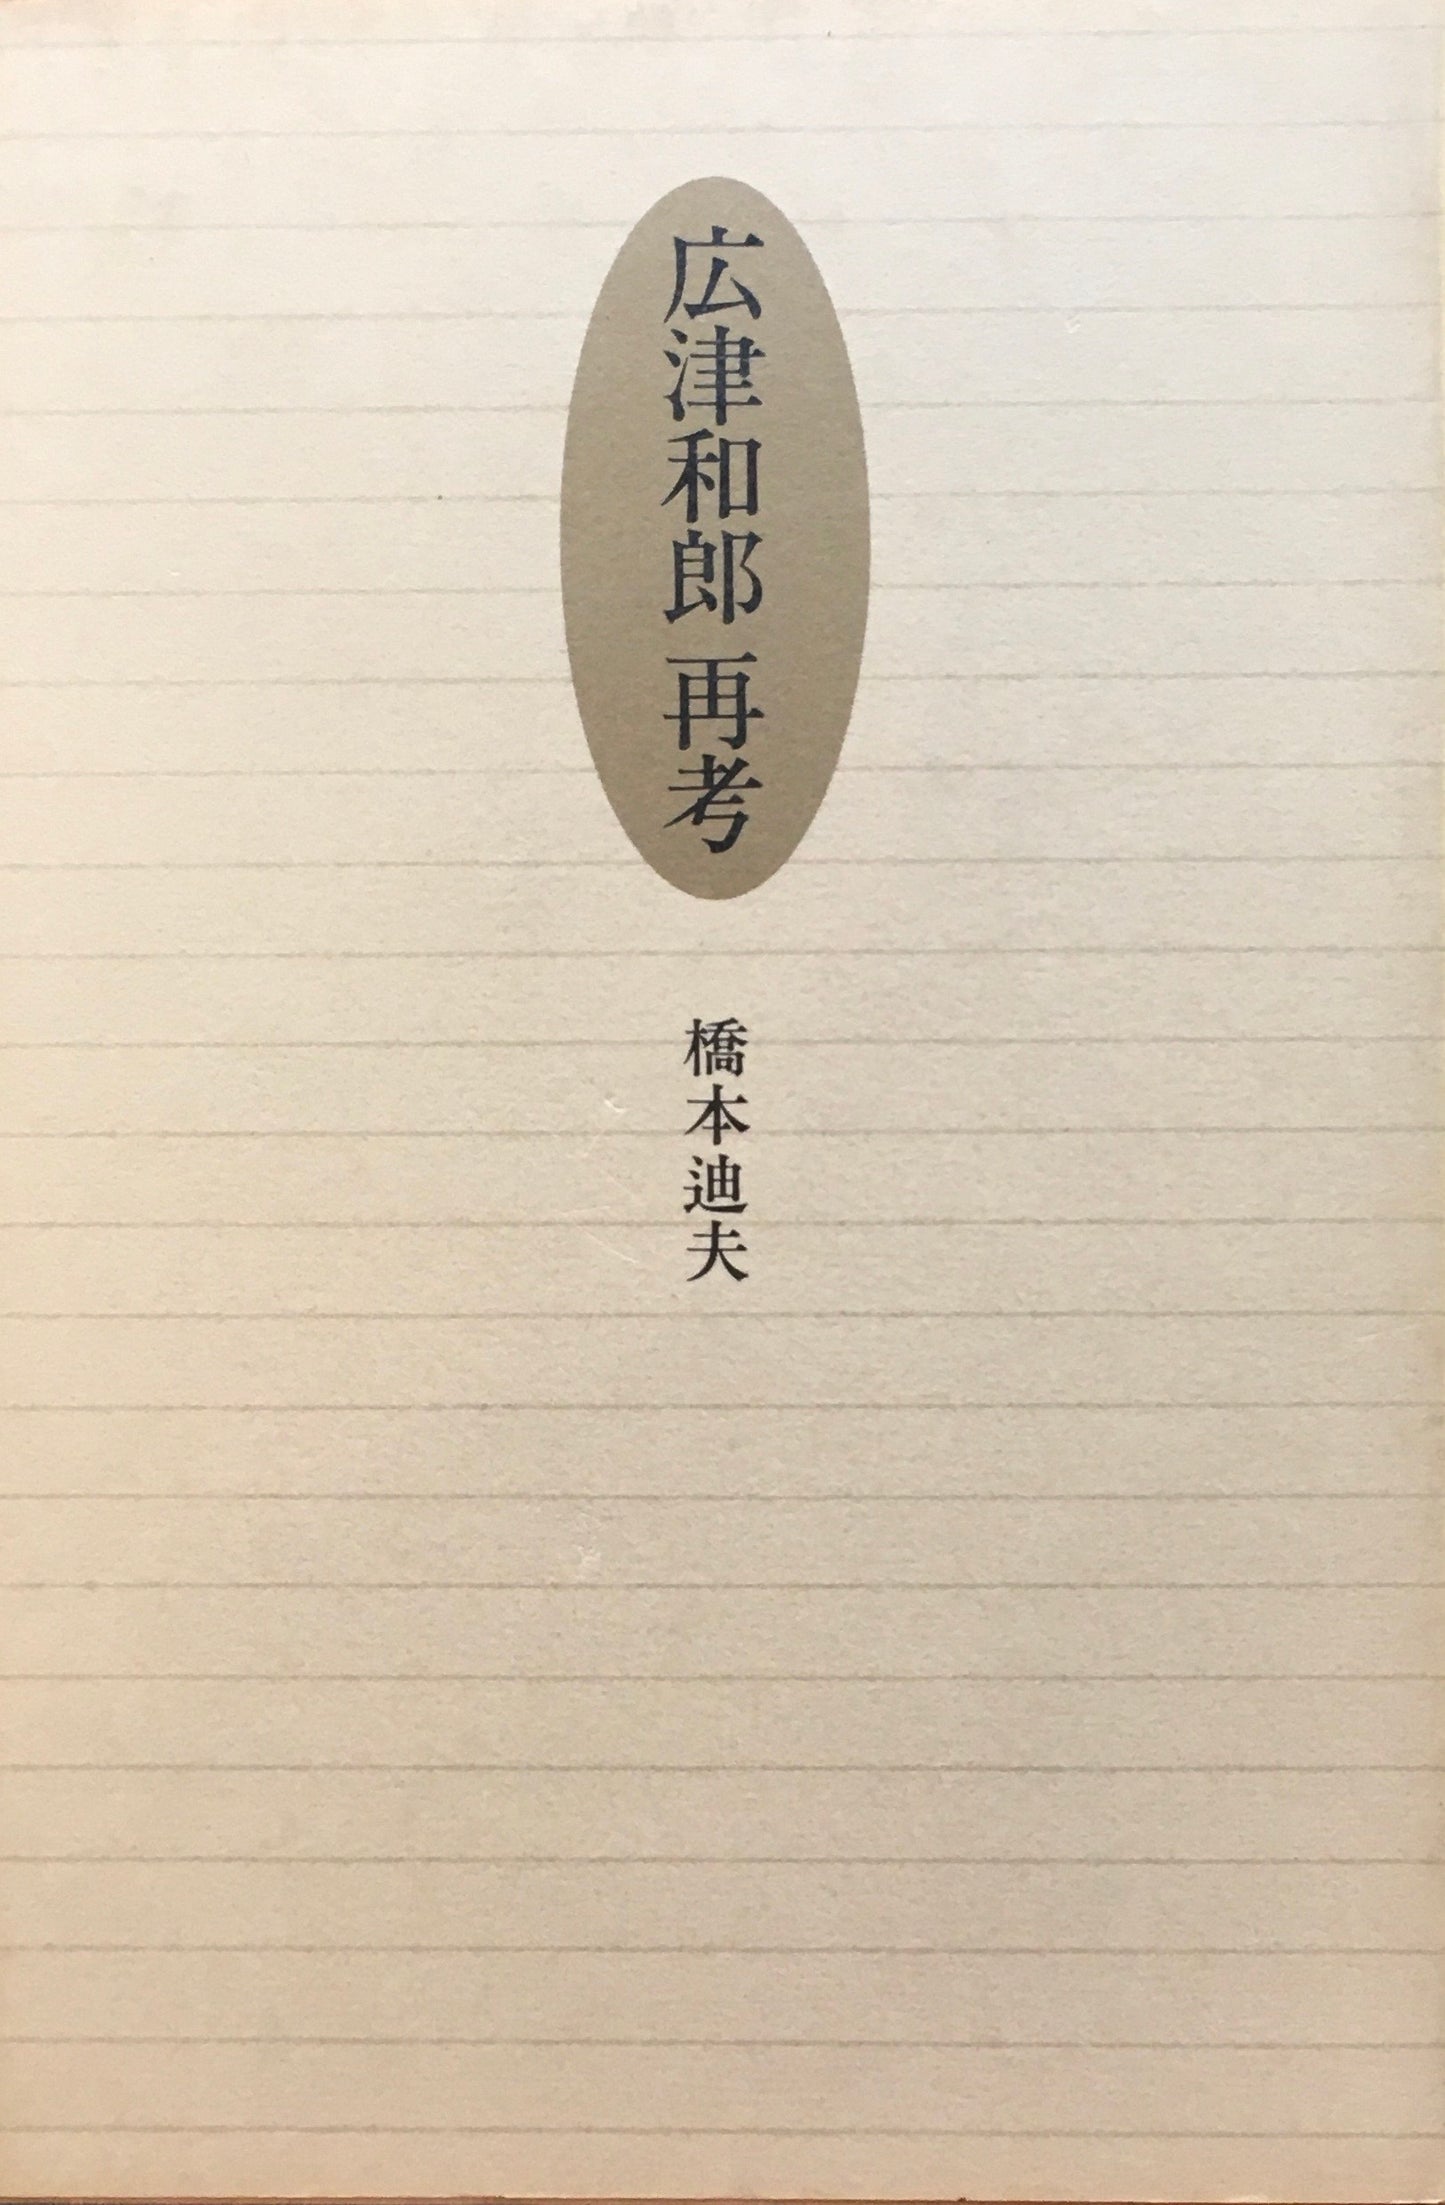 広津和郎 再考
橋本迪夫